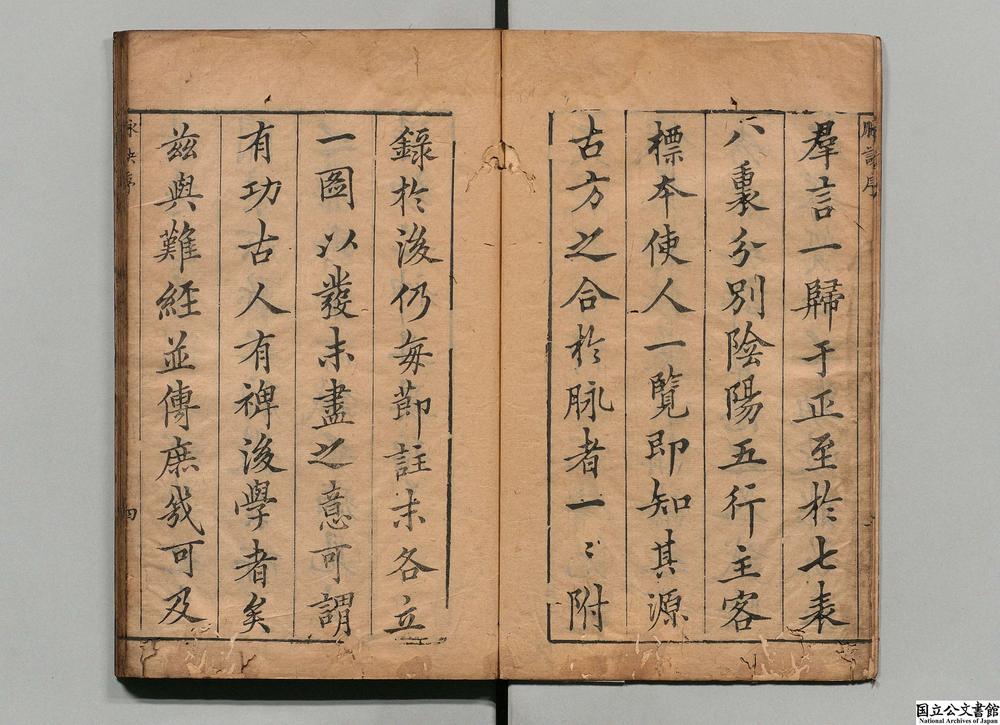 脉訣序
羣言一歸于正至於七表
八裏分別陰陽五行主客
標本使人一覽即知其源
古方之合於脉者一〻附
錄於後仍每節註末各立
一圖以發未盡之意可謂
有功古人有裨後學者矣
茲與難經並傳庶幾可及
脉訣序
四
国立公文書館
National Archives of Japan